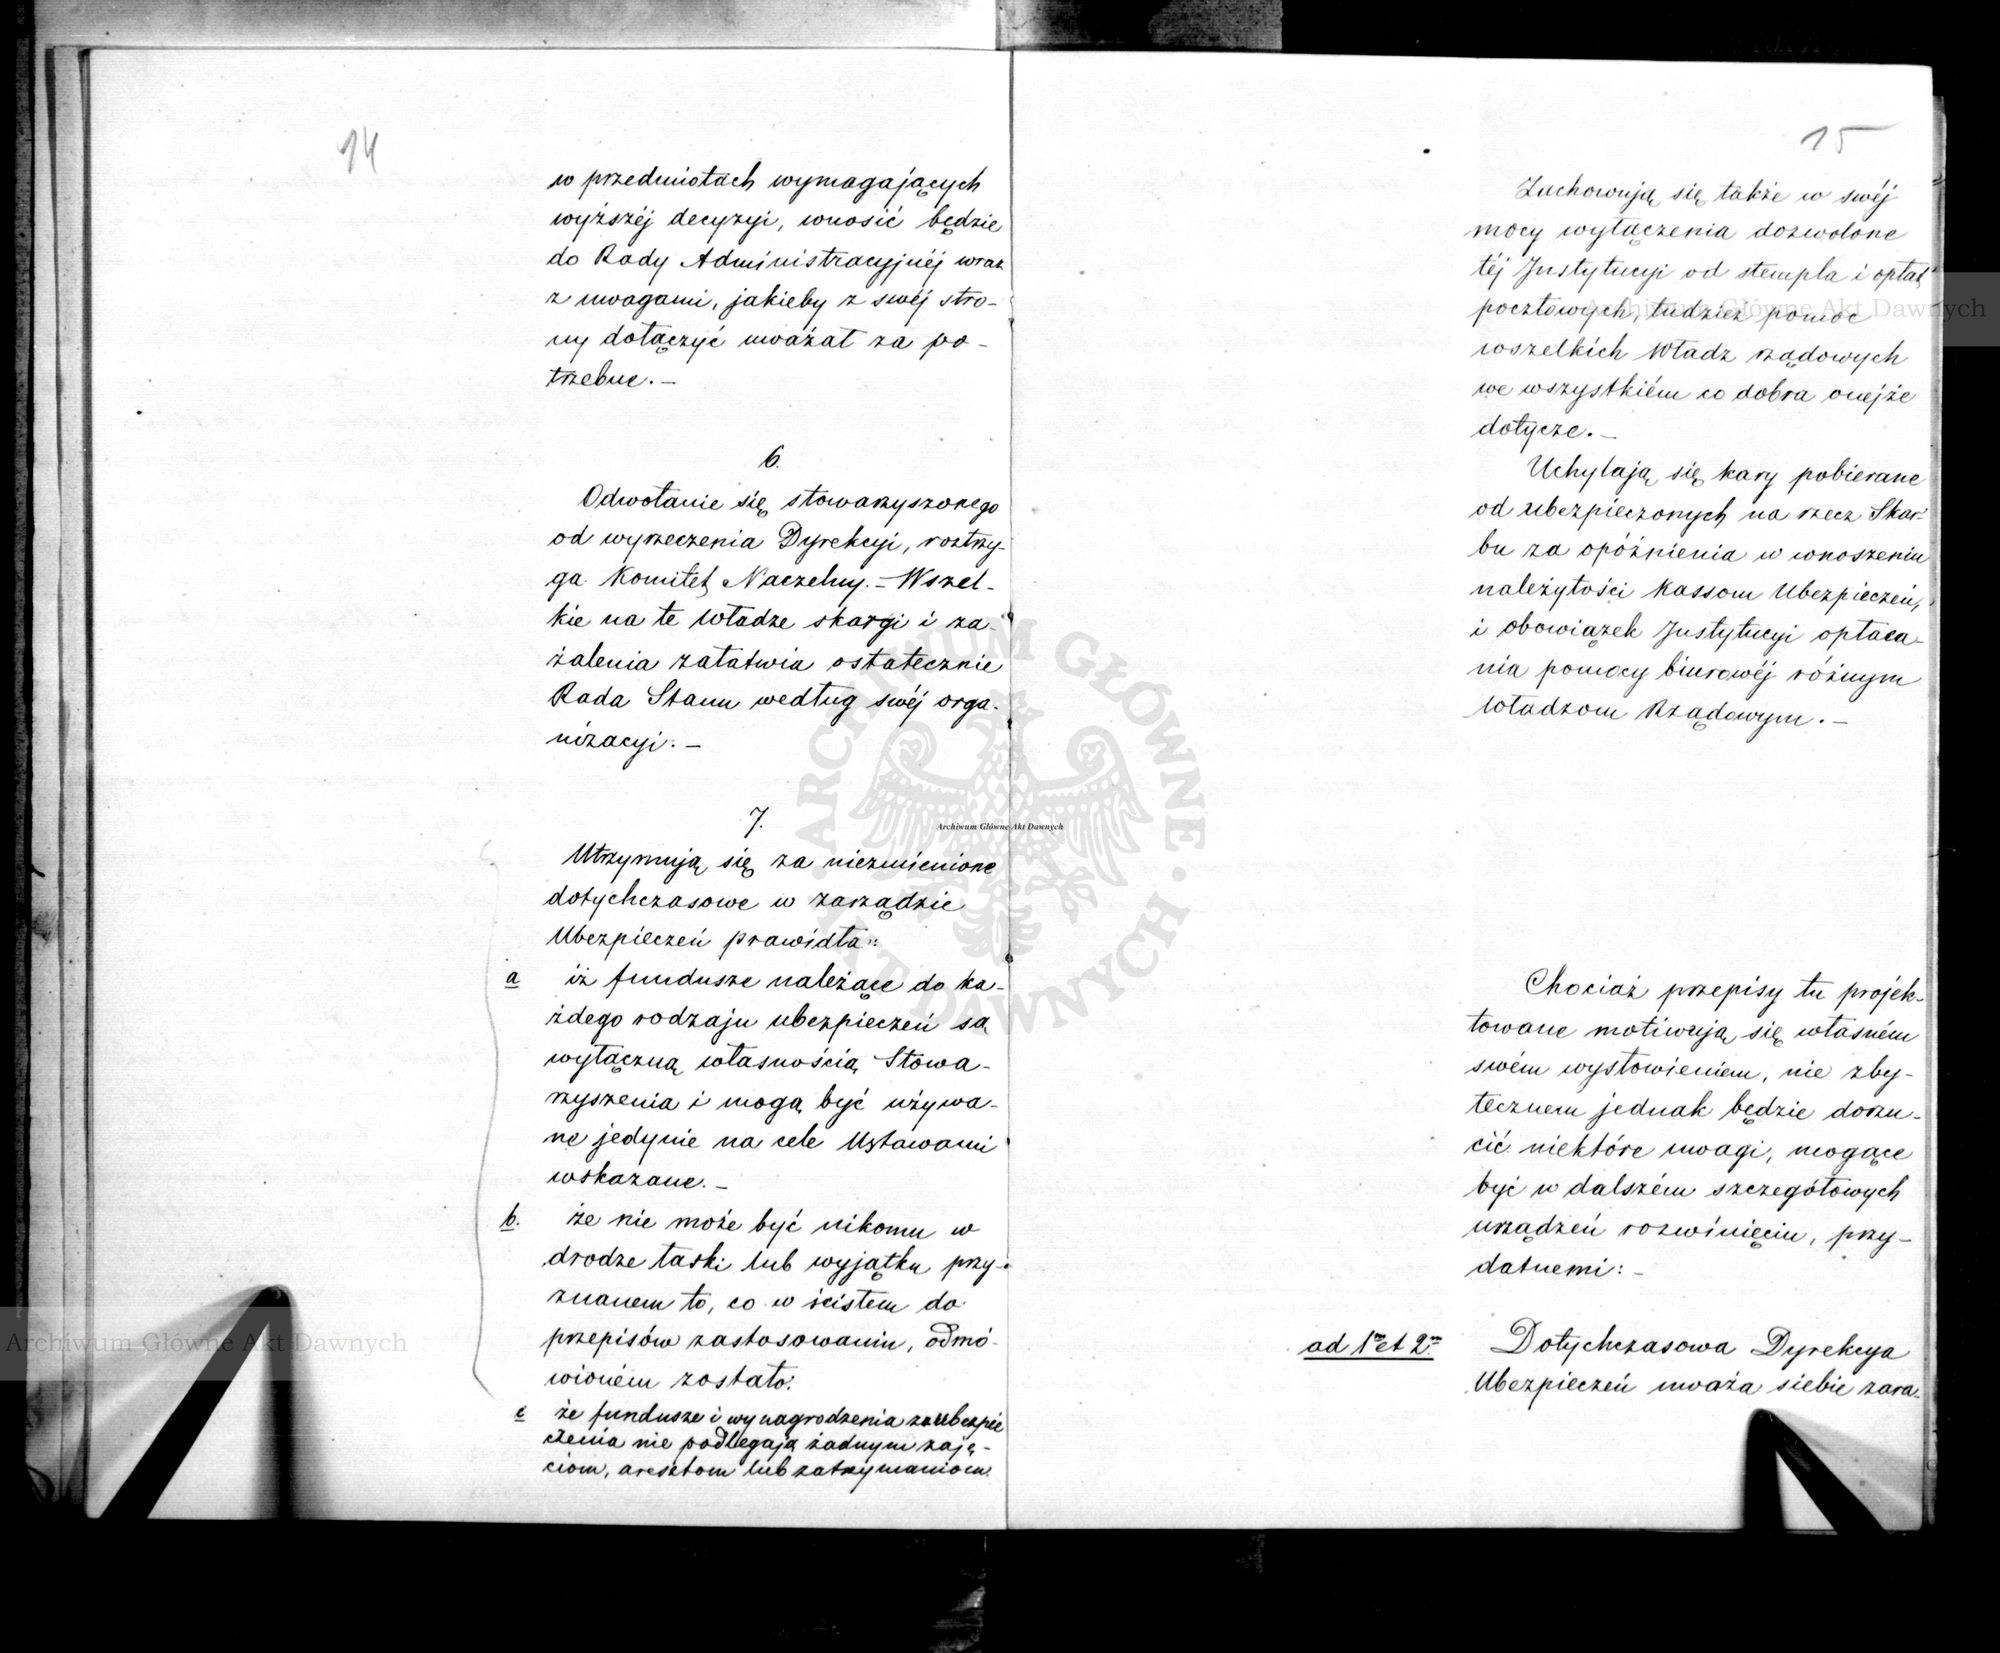 14
w przedmiotach wymagających
wyższéj decyzyi, wnosić będzie
do Rady Administracyjnéj wraz
z uwagami, jakieby z swéj stro-
ny dołączyć uważał za po-
trzebne. —
6.
Odwołanie się stowarzyszonego
od wyrzeczenia Dyrekcyi, roztrzy-
ga Komitet Naczelny. — Wszel-
kie na te Władze skargi i za-
żalenia załatwia ostatecznie
Rada Stanu według swéj orga-
nizacyi. —
7.
Utrzymują się za niezmienione
dotychczasowe w zarządzie
Ubezpieczeń prawidła:
a iż fundusze należące do ka-
żdego rodzaju ubezpieczeń są
wyłączną własnością Stowa-
rzyszenia i mogą być używa-
ne jedynie na cele Ustawami
wskazane. —
b. że nie może być nikomu w
drodze łaski lub wyjątku przy-
znanem to, co w ścisłem do
przepisów zastosowaniu, odmó-
wioném zostało.
c że fundusze i wynagrodzenia za Ubezpie
czenia nie podlegają żadnym zaję-
ciom, aresztom lub zatrzymaniom.
15
Zachowują się także w swéj
mocy wyłączenia dozwolone
téj Instytucyi od stempla i opłat
pocztowych, tudzież pomoc
wszelkich Władz rządowych
we wszystkiém co dobra onejże
dotycze. —
Uchylają się kary pobierane
od ubezpieczonych na rzecz Skar-
bu za opóźnienia w wnoszeniu
należytości Kassom Ubezpieczeń,
i obowiązek Instytucyi opłaca-
nia pomocy biurowéj różnym
Władzom Rządowym. —
Chociaż przepisy tu projek-
towane motiwują się własném
swém wysłowieniem, nie zby-
tecznem jednak będzie dorzu-
cić niektóre uwagi, mogące
być w dalszém szczegółowych
urządzeń rozwinięciu, przy-
datnemi: —
ad 1m et 2m Dotychczasowa Dyrekcya
Ubezpieczeń uważa siebie zara-
Archiwum Główne Akt Dawnych
Archiwum Główne Akt Dawnych
Archiwum Główne Akt Dawnych
ARCHIWUM GŁÓWNE AKT DAWNYCH